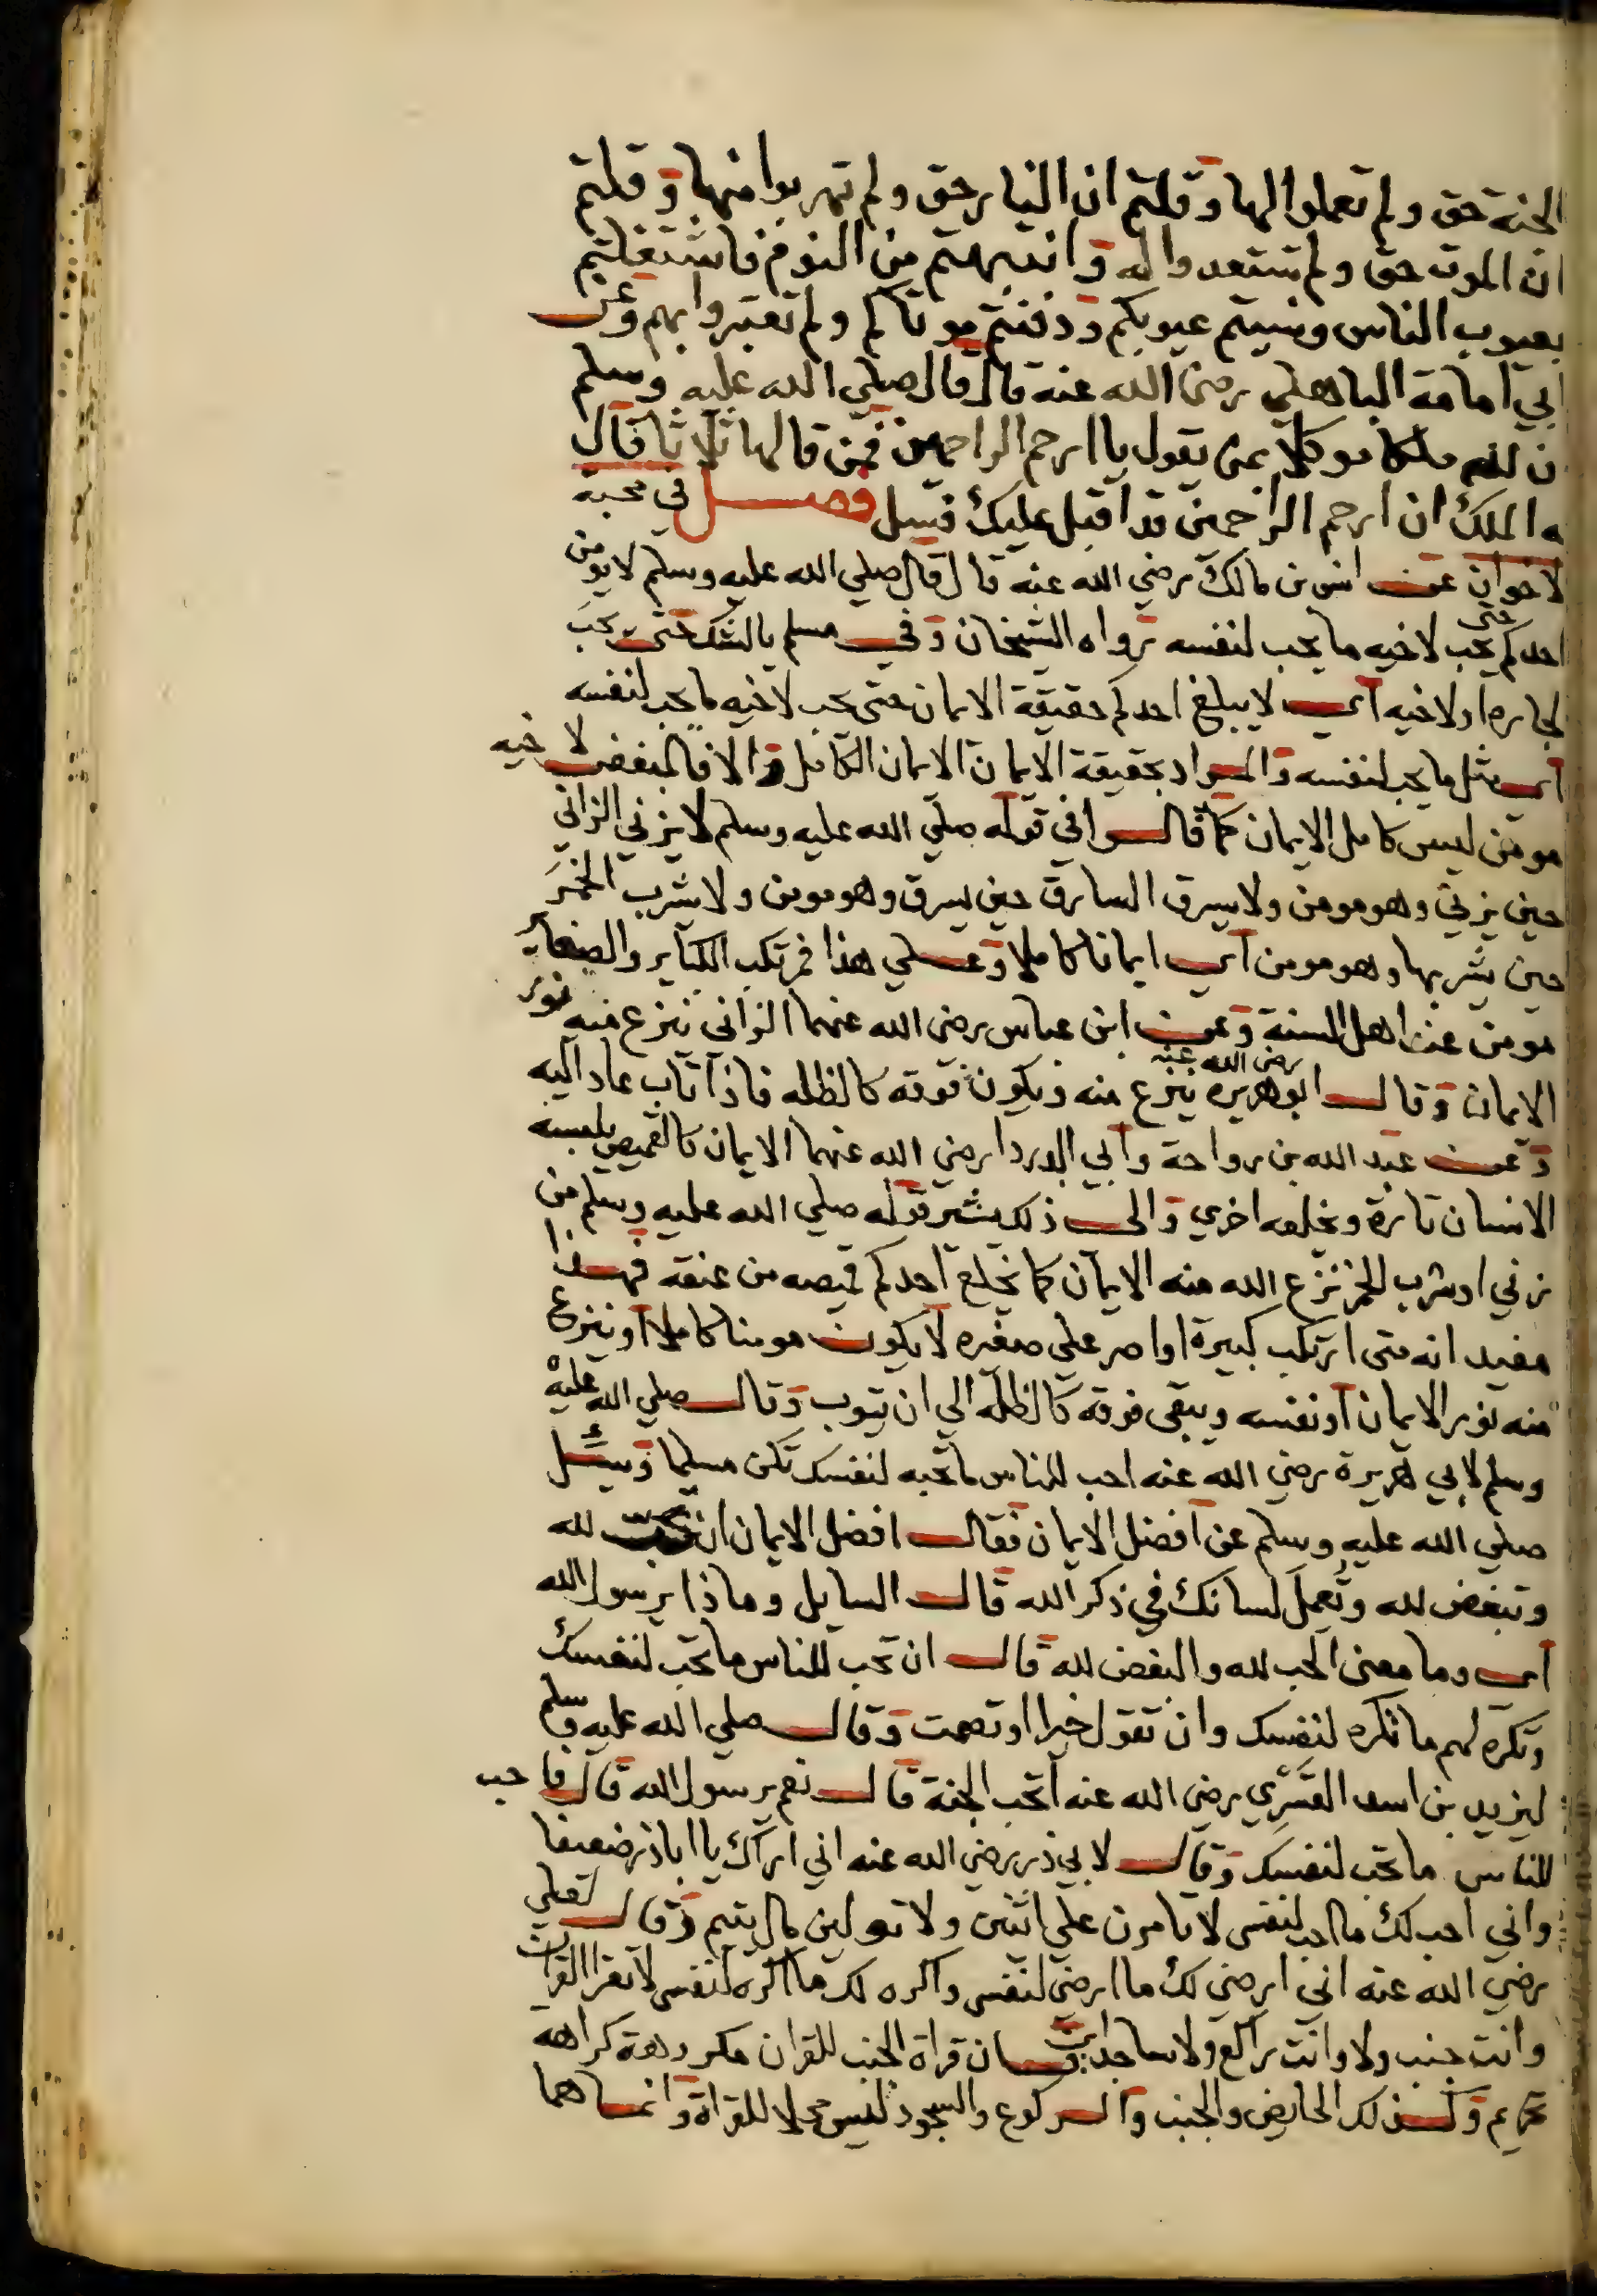 الجنة حق ولم تعملوا لها وقلتم ان النار حق ولم تهربوا منها وقلتم
ان الموت حق ولم تستعدوا له وانتبهتم من النوم فاشتغلتم
بعيوب الناس ونسيتم عيوبكم ودفنتم موتاكم ولم تعتبروا بهم وعن
ابي امامة الباهلي رضي الله عنه قال قال صلي الله عليه وسلم
ن لله ملكا موكلا بمن يقول يا ارحم الراحمين فمن قالها ثلاثا قال
ه الملك ان ارحم الراحمين قد اقبل عليك فسل فصل في محبة
لاخوان عن انس بن مالك رضي الله عنه قال قال صلي الله عليه وسلم لا يومن
احدكم حتى يحب لاخيه ما يحب لنفسه رواه الشيخان وفي مسلم بالشك حتى يحب
لجاره او لاخيه اي لا يبلغ احدكم حقيقة الايمان حتى يحب لاخيه ما يحب لنفسه
اي مثل ما يحب لنفسه والمراد بحقيقة الايمان الايمان الكامل والا فالمبغض لاخيه
مومن ليس كامل الايمان كما قالوا في قوله صلي الله عليه وسلم لا يزني الزاني
حين يزني وهو مومن ولا يسرق السارق حين يسرق وهو مومن ولا يشرب الخمر
حين يشربها وهو مومن اي ايمانا كاملا وعلي هذا فمرتكب الكباير والصغاير
مومن عند اهل السنة وعن ابن عباس رضي الله عنهما الزاني ينزع منه نور
الايمان وقال ابو هريره رضي الله عنه ينزع منه ويكون فوقه كالظله فاذا تاب عاد اليه
وعن عبد الله بن رواحة وابي الدردا رضي الله عنهما الايمان كالقميص يلبسه
الانسان تارة ويخلعه اخري والى ذلك يشير قوله صلي الله عليه وسلم من
زني او شرب الخمر نزع الله منه الايمان كما يخلع احدكم قميصه من عنقه فهذا
مفيد انه متى ارتكب كبيرة او اصر علي صغيره لا يكون مومنا كاملا او ينزع
منه نور الايمان او نفسه ويبقى فوقه كالظلة الي ان يتوب وقال صلي الله عليه
وسلم لابي هريرة رضي الله عنه احب للناس ما تحبه لنفسك تكن مسلما وسئل
صلي الله عليه وسلم عن افضل الايمان فقال افضل الايمان ان تحب لله
وتبغض لله وتعمل لسانك في ذكر الله قال السايل وماذا يرسول الله
اي وما معنى الحب لله والبغض لله قال ان تحب للناس ما تحب لنفسك
وتكره لهم ما تكره لنفسك وان تقول خيرا او تصمت وقال صلي الله عليه وسلم
ليزيد بن اسد القسري رضي الله عنه اتحب الجنة قال نعم يرسول الله قال فاحب
للناس ما تحب لنفسك وقال لابي ذر رضي الله عنه اني اراك يا اباذر ضعيفا
واني احب لك ما احب لنفسي لا تامرن علي اثنين ولا تولين مال يتيم وقال لعلي
رضي الله عنه اني ارضي لك ما ارضي لنفسي واكره لك ما اكره لنفسي لا تقرا القران
وانت جنب ولا وانت راكع ولا ساجد اي فان قراة الجنب للقران مكروهة كراهة
تحريم وكذلك الحايض والجنب والركوع والسجود ليس محلا للقراة وانما هما